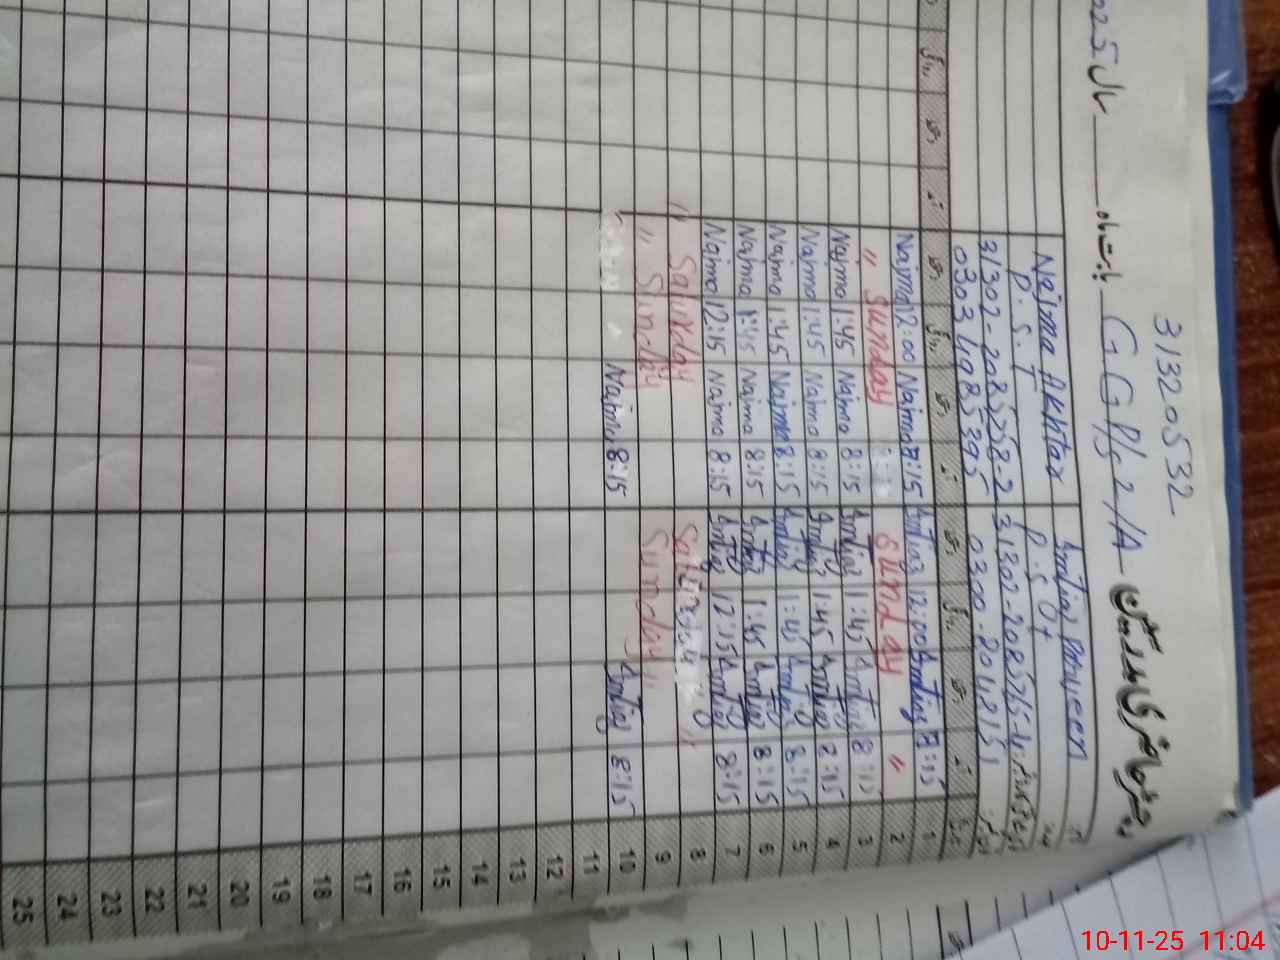 31320532
GGP/s 2/A بابت ماہ سال 025
Imtiaz Parveen Najma Akhtar
P.S.T
31302-2085258-2
0300-8014815 0303
1 8:15 Imtiaz 12:00 Imtiaz 8:15 Najma 12:00 Najma
2 " Sunday Sunday "
3 8:15 Imtiaz 1:45 Imtiaz 8:15 Najma 1:45 Najma
4 8:15 Imtiaz 1:45 Imtiaz 8:15 Najma 1:45 Najma
5 8:15 Imtiaz 1:45 Imtiaz 8:15 Najma 1:45 Najma
6 8:15 Imtiaz 1:45 Imtiaz 8:15 Najma 1:45 Najma
7 8:15 Imtiaz 12:15 Imtiaz 8:15 Najma 12:15 Najma
8 " Saturday Saturday "
9 " Sunday Sunday "
10 8:15 Imtiaz 8:15 Najma
11
12
13
14
15
16
17
18
19
20
21
22
23
24
25
10-11-25 11:04